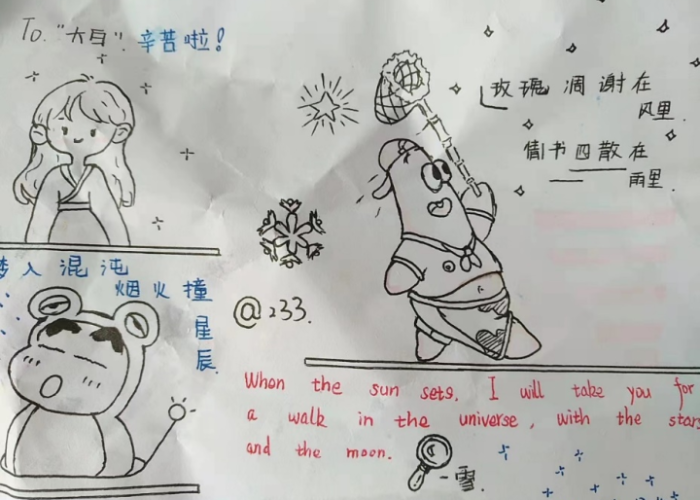 To. "大白". 辛苦啦!
玫瑰凋谢在
风里.
情书四散在
雨里.
梦入混沌
烟火撞
星
辰
@233.
When the sun sets, I will take you for
a walk in the universe, with the stars
and the moon.
雪.